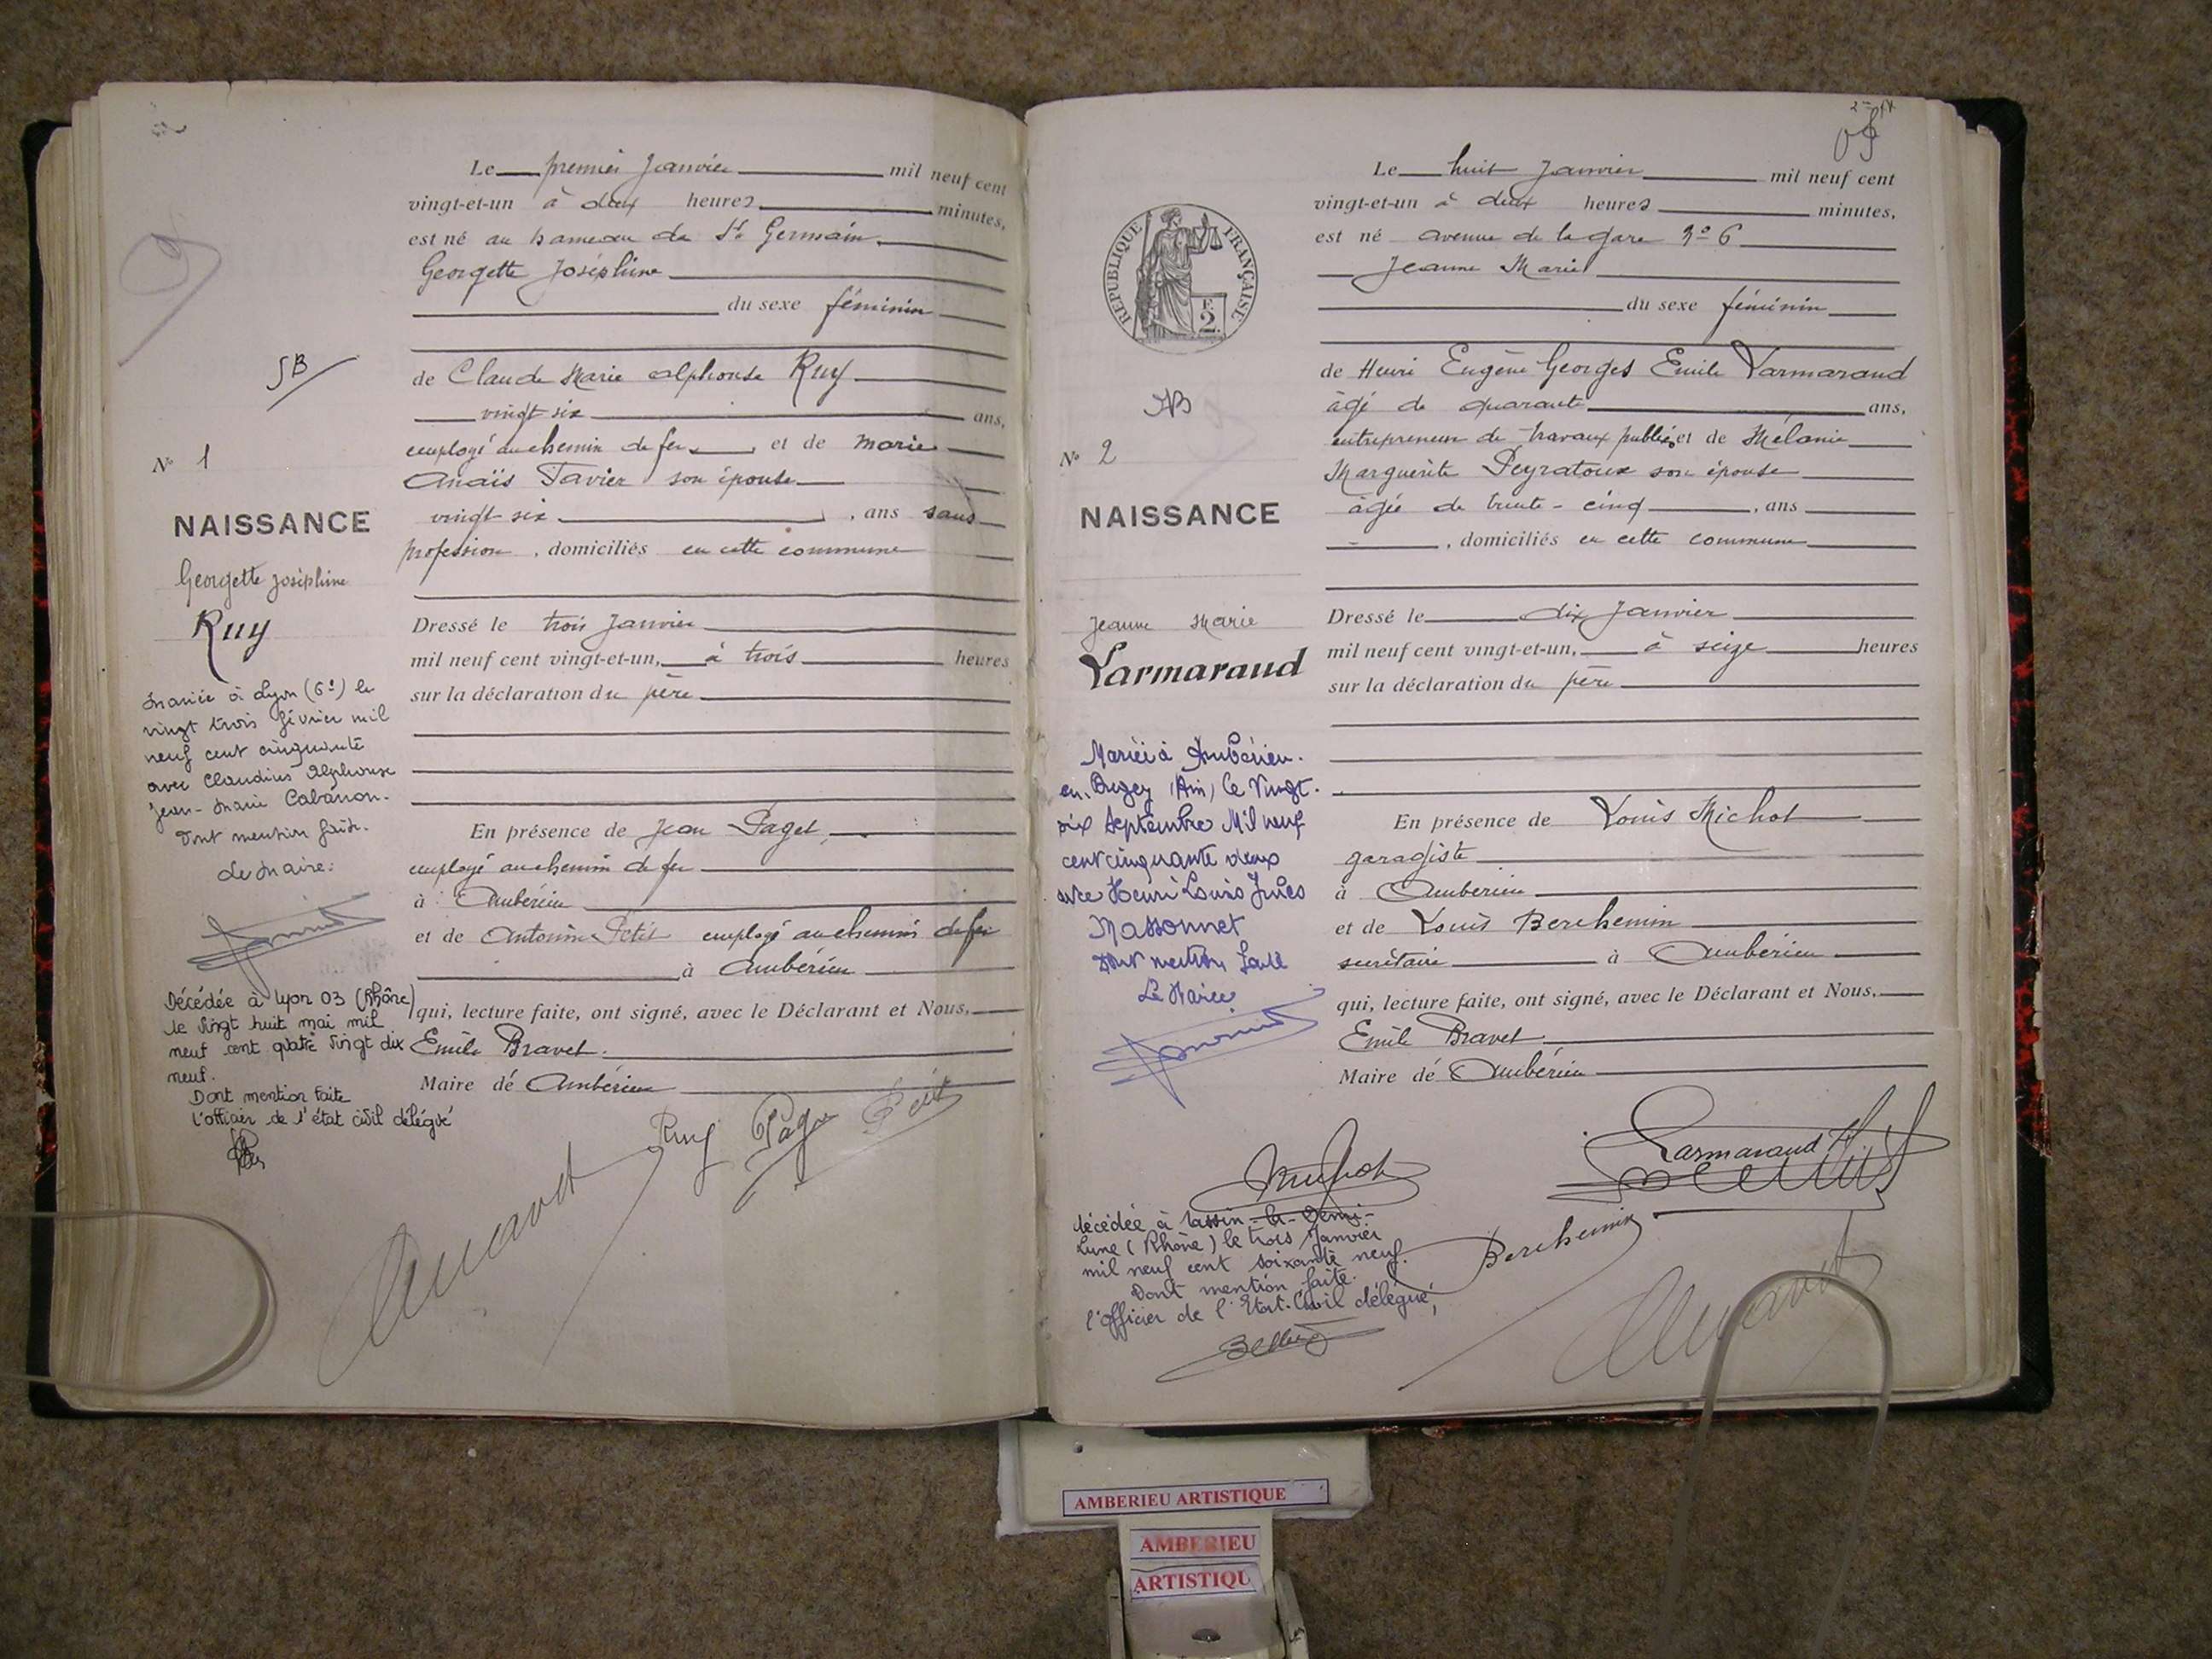 Le premier Janvier mil neuf cent
vingt-et-un à deux heures minutes,
est né au hameau de St Germain
Georgette Joséphine
du sexe féminin
de Claude Marie Alphonse Ruy
vingt six ans,
employé au chemin de fer et de Marie
Anaïs Tavier son épouse
vingt six , ans sans
profession , domiciliés en cette commune
Dressé le trois Janvier
mil neuf cent vingt-et-un, à trois heures
sur la déclaration du père
En présence de Jean Paget,
employé au chemin de fer
à Ambérieu
et de Antonin Petit employé au chemin de fer
à Ambérieu
qui, lecture faite, ont signé, avec le Déclarant et Nous,
Emile Bravet.
Maire de Ambérieu
Ruy Petit
SB
No 1
NAISSANCE
Georgette Joséphine
Ruy
Mariée à Lyon (6e) le
vingt trois février mil
neuf cent cinquante
avec Claudius Alphonse
Jean-Marie Cabanon.
Dont mention faite.
Le Maire:
Décédée à Lyon 03 (Rhône)
le vingt huit mai mil
neuf cent quatre vingt dix
neuf.
Dont mention faite
L'officier de l'état civil délégué
Le huit Janvier mil neuf cent
vingt-et-un à deux heures minutes,
est né avenue de la gare No 6
Jeanne Marie
du sexe féminin
de Henri Eugène Georges Emile Larmaraud
âgé de quarante ans,
entrepreneur de travaux publics et de Mélanie
Marguerite Peyratoux son épouse
âgée de trente-cinq , ans
, domiciliés en cette commune
Dressé le dix Janvier
mil neuf cent vingt-et-un, à seize heures
sur la déclaration du père
En présence de Louis Michot
garagiste
à Ambérieu
et de Louis Berchemin
secrétaire à Ambérieu
qui, lecture faite, ont signé, avec le Déclarant et Nous,
Emile Bravet
Maire de Ambérieu
Larmaraud H.
Michot
Berchemin
RÉPUBLIQUE FRANÇAISE
F.
2.
No 2
NAISSANCE
Jeanne Marie
Larmaraud
Mariée à Ambérieu-
en-Bugey (Ain) le Vingt-
six Septembre Mil neuf
cent cinquante deux
avec Henri Louis Jules
Massonnet
Dont mention faite
Le Maire
décédée à Tassin-la-Demi-
Lune (Rhône) le trois Janvier
mil neuf cent soixante neuf.
Dont mention faite.
l'Officier de l'Etat-Civil délégué,
AMBERIEU ARTISTIQUE
AMBERIEU
ARTISTIQU